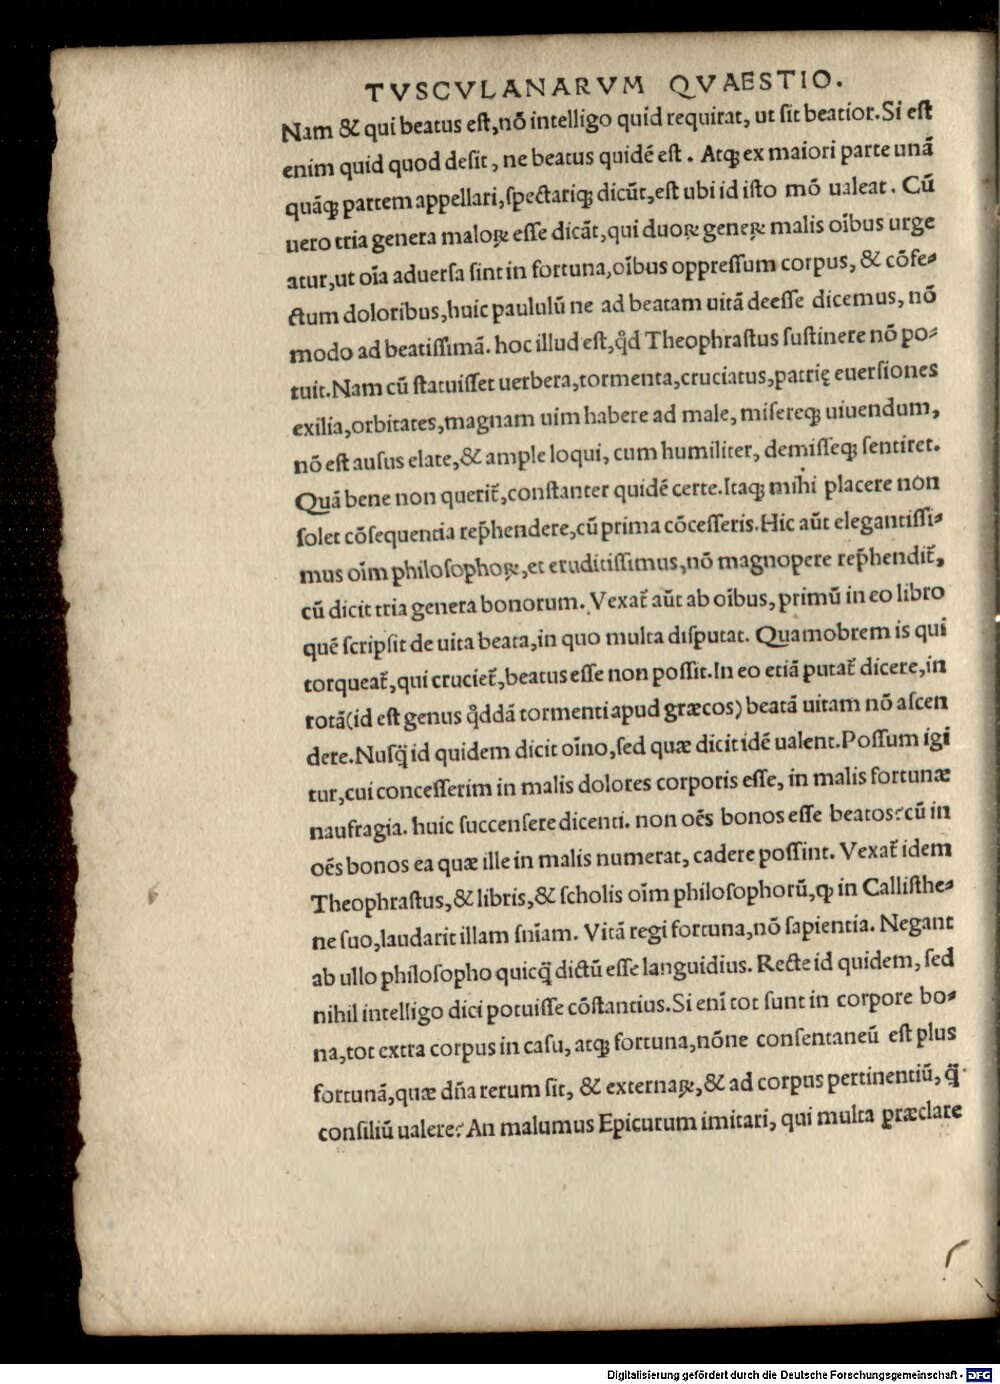 TVSCVLANARVM QVAESTIO.
Nam & qui beatus eſt,nõ intelligo quid requirat, ut ſit beatior.Si eſt
enim quid quod deſit, ne beatus quidẽ eſt . Atq; ex maiori parte unã
quãq; partem appellari,ſpectariq; dicũt,eſt ubi id iſto mõ ualeat. Cũ
uero tria genera maloꝝ eſſe dicãt,qui duoꝝ geneꝝ malis oĩbus urge
atur,ut oĩa aduerſa ſint in fortuna,oĩbus oppreſſum corpus, & cõfe⸗
ctum doloribus,huic paululũ ne ad beatam uitã deeſſe dicemus, nõ
modo ad beatiſſimã. hoc illud eſt,qd̉ Theophraſtus ſuſtinere nõ po⸗
tuit.Nam cũ ſtatuiſſet uerbera,tormenta,cruciatus,patrię euerſiones
exilia,orbitates,magnam uim habere ad male, miſereq; uiuendum,
nõ eſt auſus elate,& ample loqui, cum humiliter, demiſſeq; ſentiret.
Quã bene non querit᷑,conſtanter quidẽ certe.Itaq; mihi placere non
ſolet cõſequentia rep̃hendere,cũ prima cõceſſeris.Hic aũt elegantiſſi⸗
mus oĩm philoſophoꝝ,et eruditiſſimus,nõ magnopere rep̃hendit᷑,
cũ dicit tria genera bonorum. Vexat᷑ aũt ab oĩbus, primũ in eo libro
quẽ ſcripſit de uita beata,in quo multa diſputat. Quamobrem is qui
torqueat᷑,qui cruciet᷑,beatus eſſe non poſſit.In eo etiã putat᷑ dicere,in
rotã(id eſt genus qd̉dã tormenti apud græcos) beatã uitam nõ aſcen
dere.Nuſq̃ id quidem dicit oĩno,ſed quæ dicit idẽ ualent.Poſſum igi
tur,cui conceſſerim in malis dolores corporis eſſe, in malis fortunæ
naufragia. huic ſuccenſere dicenti. non oẽs bonos eſſe beatos?cũ in
oẽs bonos ea quæ ille in malis numerat, cadere poſſint. Vexat᷑ idem
Theophraſtus,& libris,& ſcholis oĩm philoſophorũ,ꝙ in Calliſthe⸗
ne ſuo,laudarit illam ſñiam. Vitã regi fortuna,nõ ſapientia. Negant
ab ullo philoſopho quicq̃ dictũ eſſe languidius. Recte id quidem, ſed
nihil intelligo dici potuiſſe cõſtantius.Si enĩ tot ſunt in corpore bo⸗
na,tot extra corpus in caſu, atq; fortuna,nõne conſentaneũ eſt plus
fortunã,quæ dña rerum ſit, & externaꝝ,& ad corpus pertinentiũ, q̃
conſiliũ ualere? An malumus Epicurum imitari, qui multa præclare
Digitalisierung gefördert durch die Deutsche Forschungsgemeinschaft - DFG